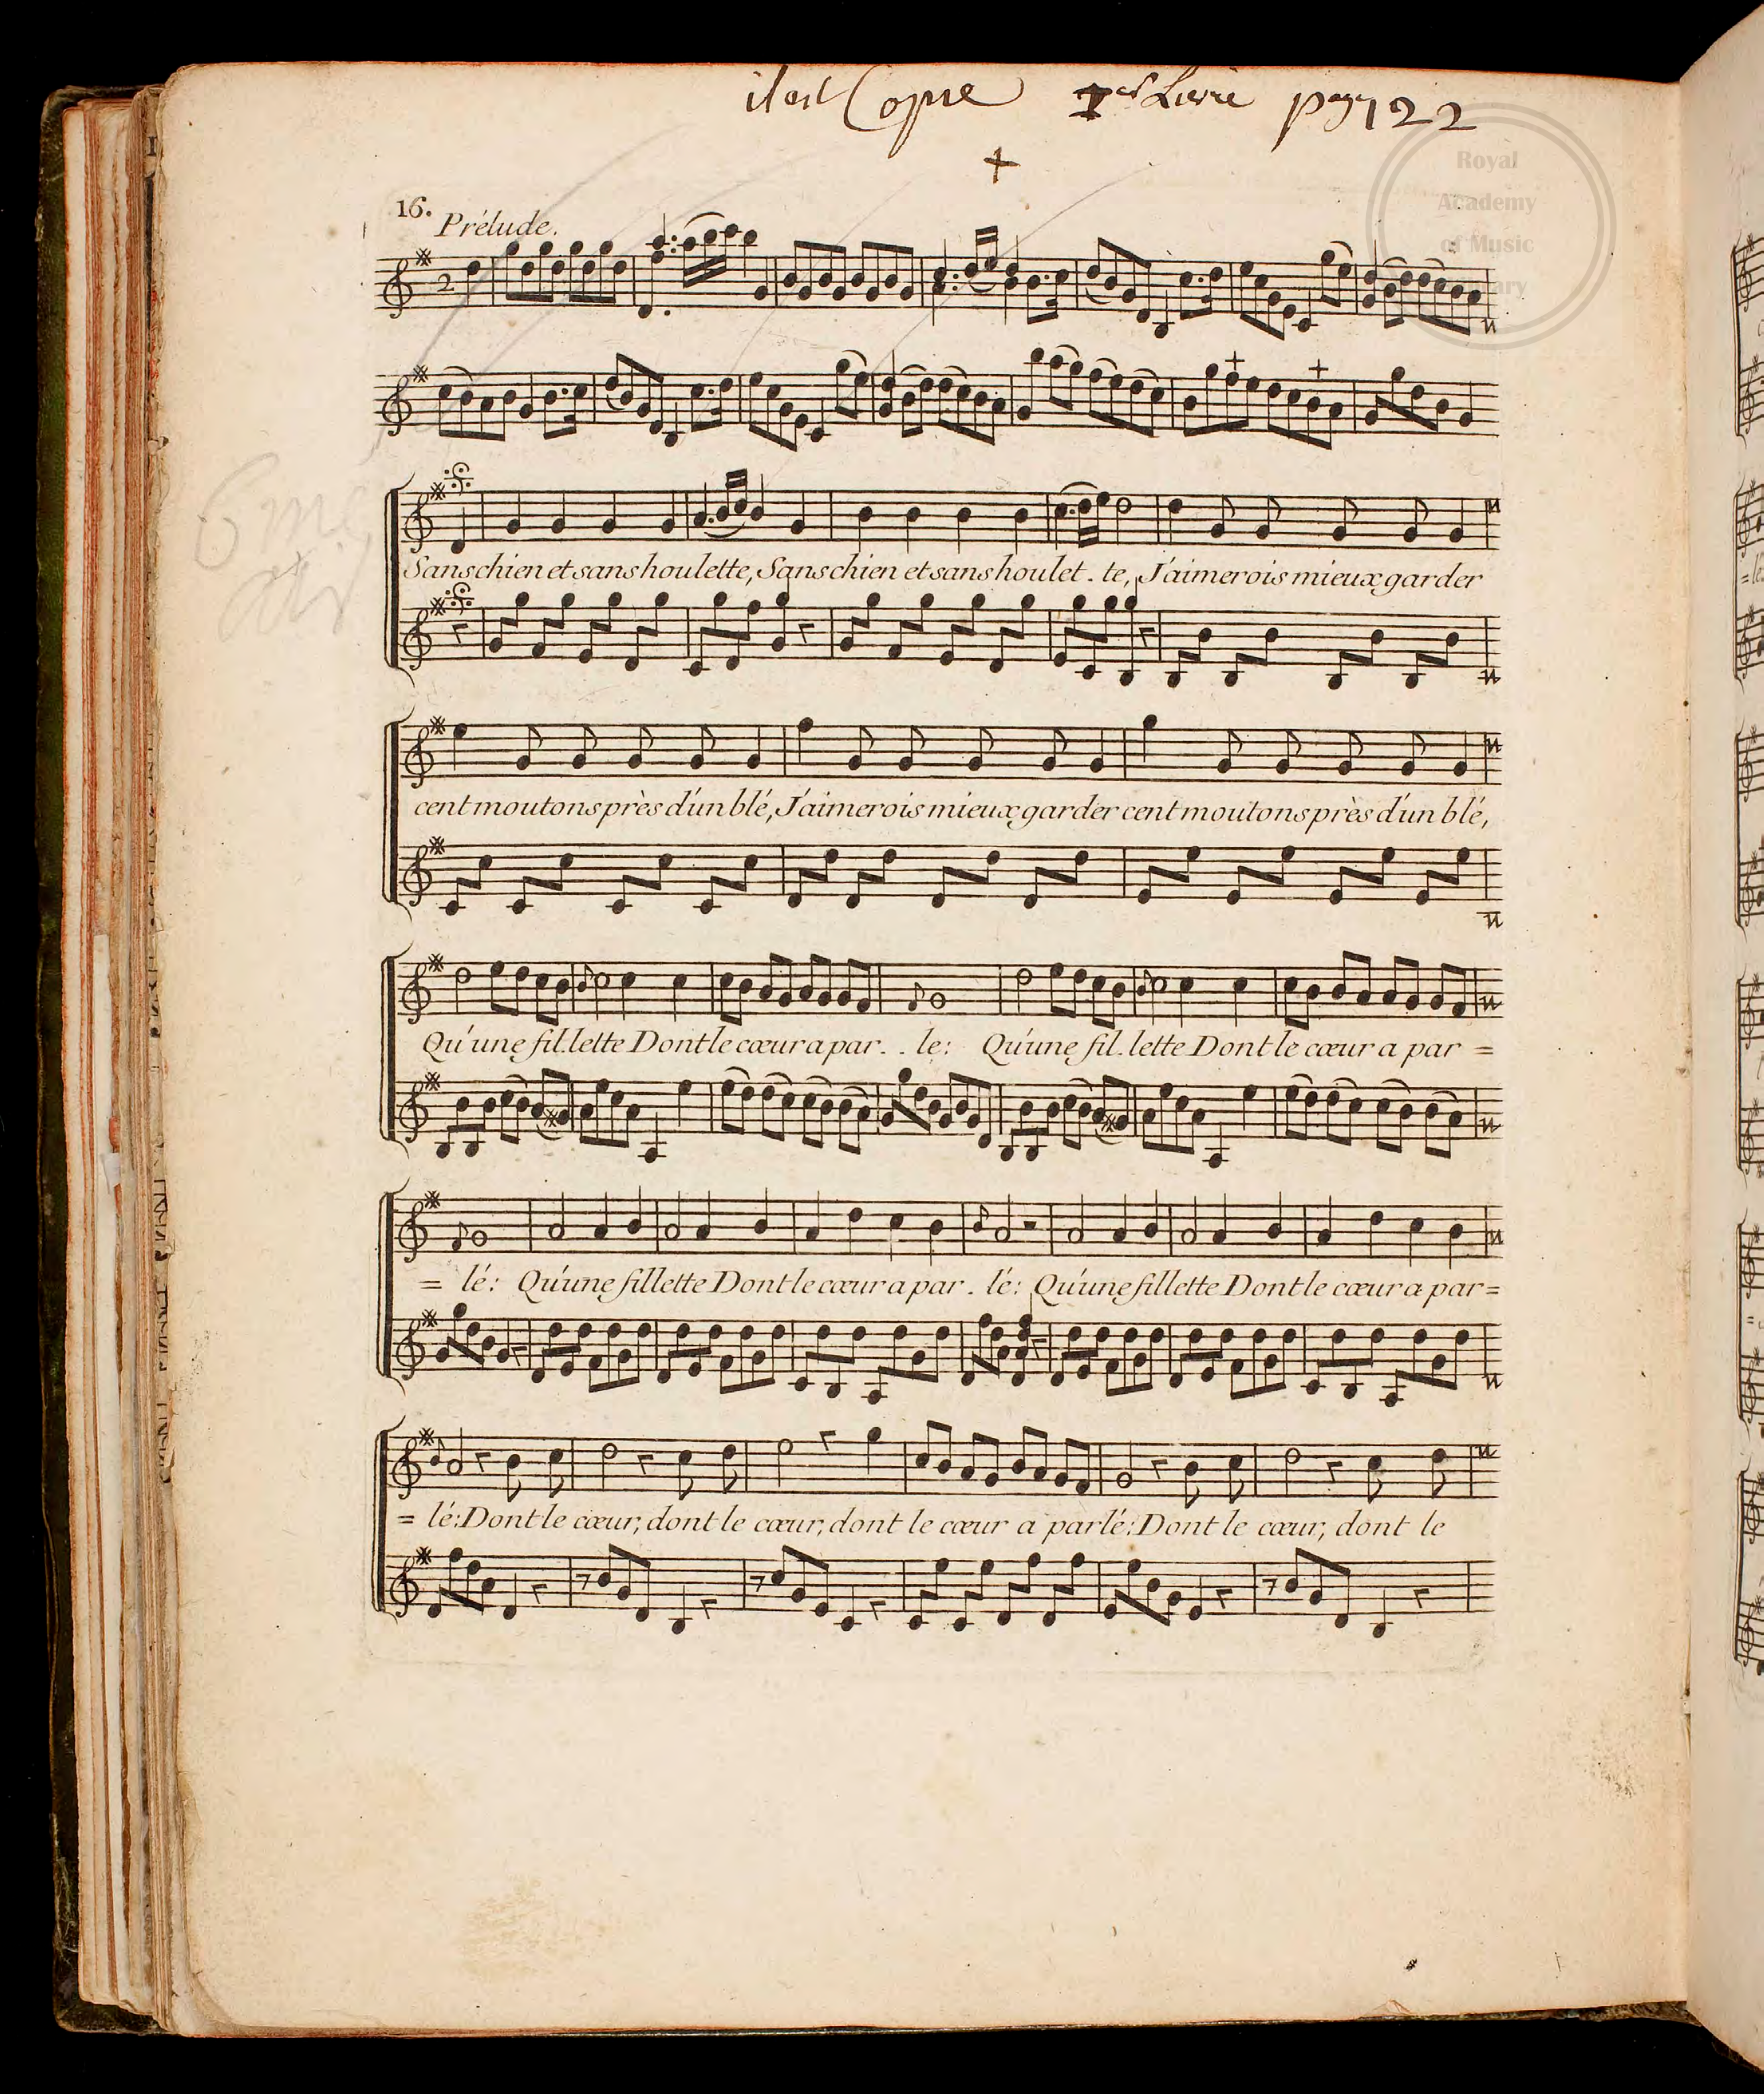 il est Copie 1er Livre page 122
Royal
Academy
of Music
Library
16.
Prélude.
2
6me
air
Sans chien et sans houlette, Sans chien et sans houlet . te, J'aimerois mieux garder
cent moutons près d'un blé, J'aimerois mieux garder cent moutons près d'un blé,
Qu'une fil.lette Dont le cœur a par. . le: Qu'une fil.lette Dont le cœur a par =
= lé: Qu'une fillette Dont le cœur a par . lé: Qu'une fillette Dont le cœur a par=
= lé: Dont le cœur, dont le cœur, dont le cœur a parlé: Dont le cœur, dont le